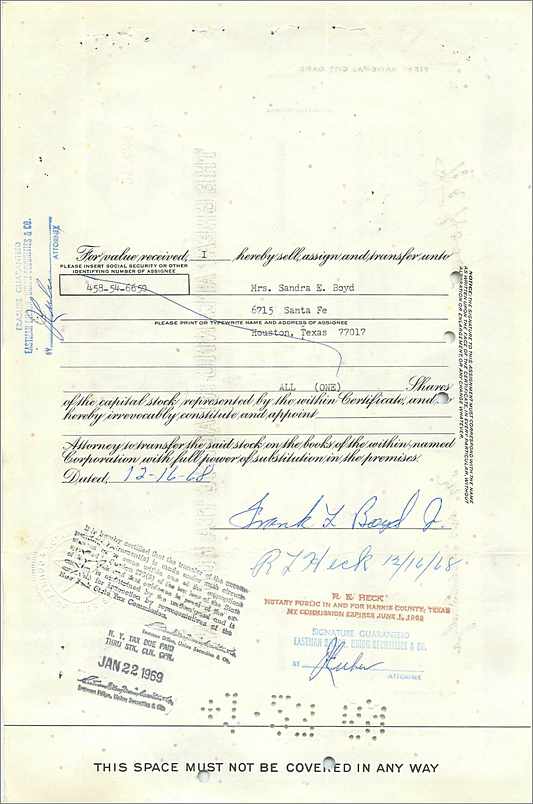 For value received, I hereby sell, assign and transfer unto
PLEASE INSERT SOCIAL SECURITY OR OTHER
IDENTIFYING NUMBER OF ASSIGNEE
Mrs. Sandra E. Boyd
6715 Santa Fe
PLEASE PRINT OR TYPEWRITE NAME AND ADDRESS OF ASSIGNEE
Houston, Texas 77017
ALL (ONE) Shares
of the capital stock represented by the within Certificate, and
hereby irrevocably constitute and appoint
Attorney to transfer the said stock on the books of the within named
Corporation with full power of substitution in the premises.
Dated, 12-16-68
Frank L Boyd Jr.
R L Heck 12/16/68
R. E. HECK
NOTARY PUBLIC IN AND FOR HARRIS COUNTY, TEXAS
MY COMMISSION EXPIRES JUNE 1, 19
SIGNATURE GUARANTEED
EASTMAN DILLON, UNION SECURITIES & CO.
BY ATTORNEY
SIGNATURE GUARANTEED
EASTMAN DILLON, UNION SECURITIES & CO.
BY ATTORNEY
NOTICE: THE SIGNATURE TO THIS ASSIGNMENT MUST CORRESPOND WITH THE NAME
AS WRITTEN UPON THE FACE OF THE CERTIFICATE, IN EVERY PARTICULAR, WITHOUT
ALTERATION OR ENLARGEMENT, OR ANY CHANGE WHATEVER.
It is hereby certified that the transfer of the
State Tax Commission.
Eastman Dillon, Union Securities & Co.
N. Y. TAX DUE PAID
THRU STK. CLR. CPN.
JAN 22 1969
Eastman Dillon, Union Securities & Co.
THIS SPACE MUST NOT BE COVERED IN ANY WAY